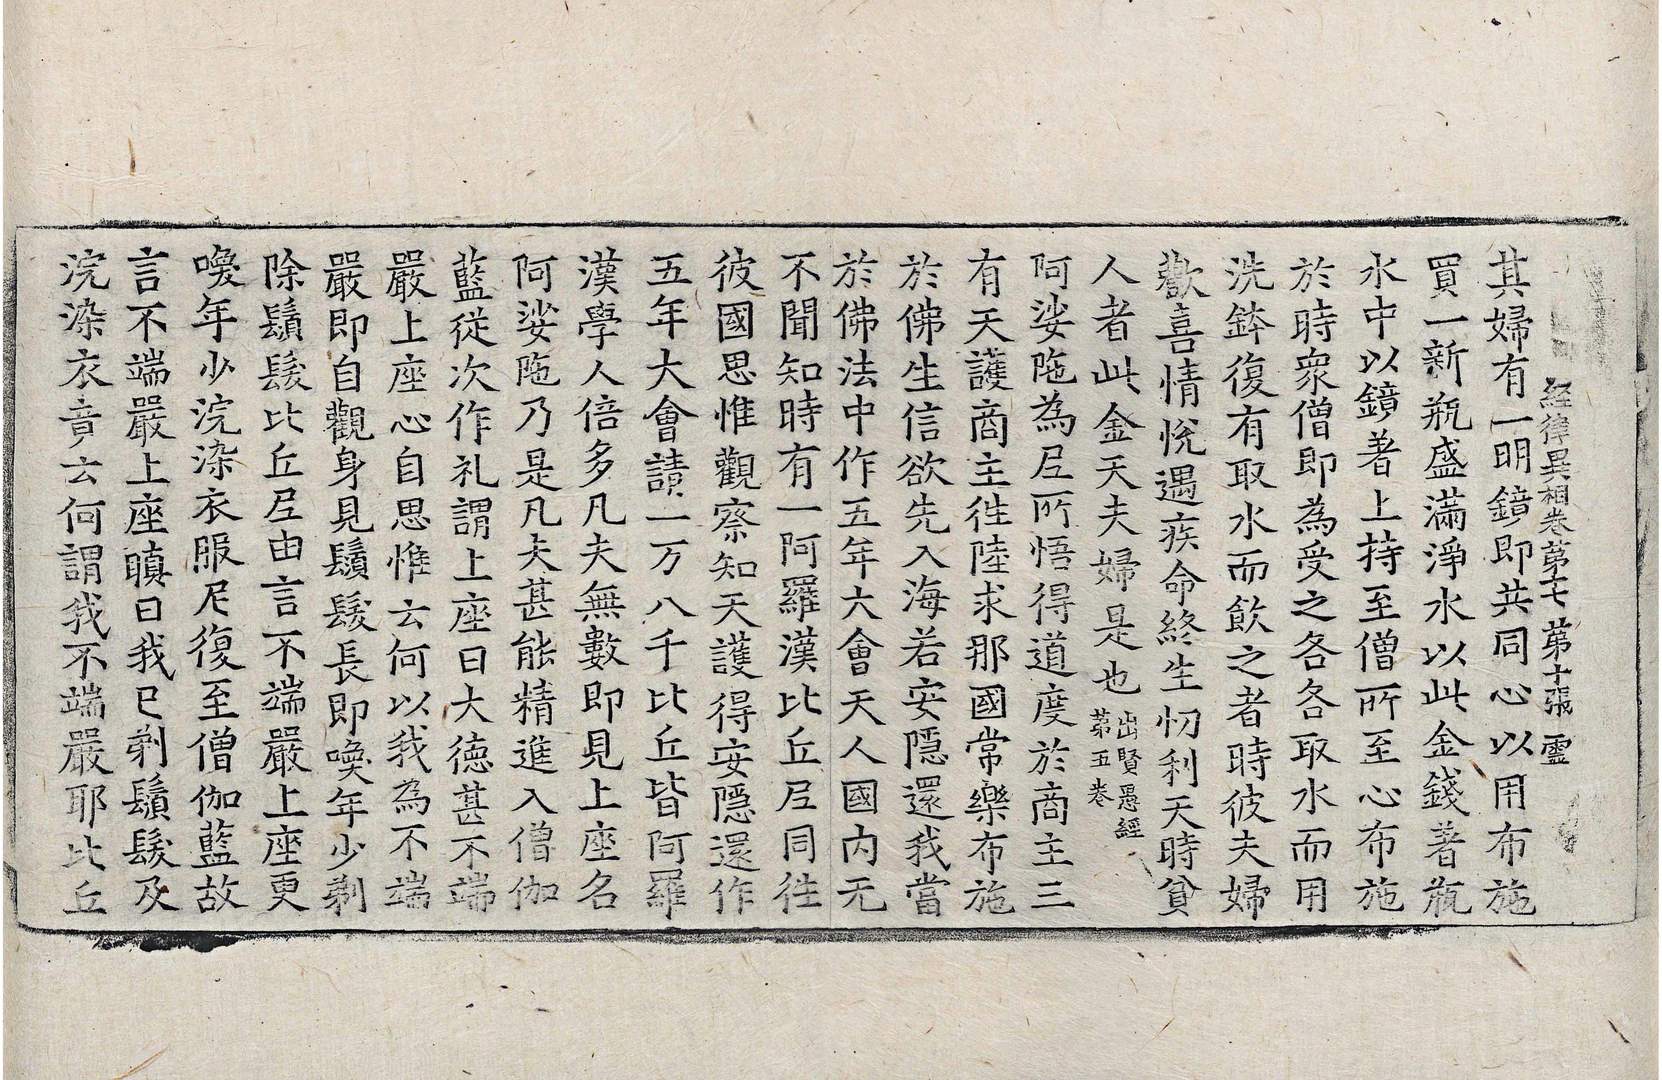 経律異相卷第七 第十張 霊
其婦有一明鏡即共同心以用布施
買一新瓶盛滿淨水以此金錢著瓶
水中以鏡著上持至僧所至心布施
於時衆僧即為受之各各取水而用
洗鉢復有取水而飲之者時彼夫婦
歡喜情悅遇疾命終生忉利天時貧
人者此金天夫婦是也出賢愚經第五卷
阿娑陁為尼所悟得道度於商主三
有天護商主徃陸求那國常樂布施
於佛生信欲先入海若安隱還我當
於佛法中作五年大會天人國內无
不聞知時有一阿羅漢比丘尼同徃
彼國思惟觀察知天護得安隱還作
五年大會請一万八千比丘皆阿羅
漢學人倍多凡夫無數即見上座名
阿娑陁乃是凡夫甚能精進入僧伽
藍従次作礼謂上座曰大徳甚不端
嚴上座心自思惟云何以我為不端
嚴即自觀身見鬚髮長即喚年少剃
除鬚髮比丘尼由言不端嚴上座更
喚年少浣染衣服尼復至僧伽藍故
言不端嚴上座瞋曰我已剃鬚髮及
浣染衣竟云何謂我不端嚴耶比丘